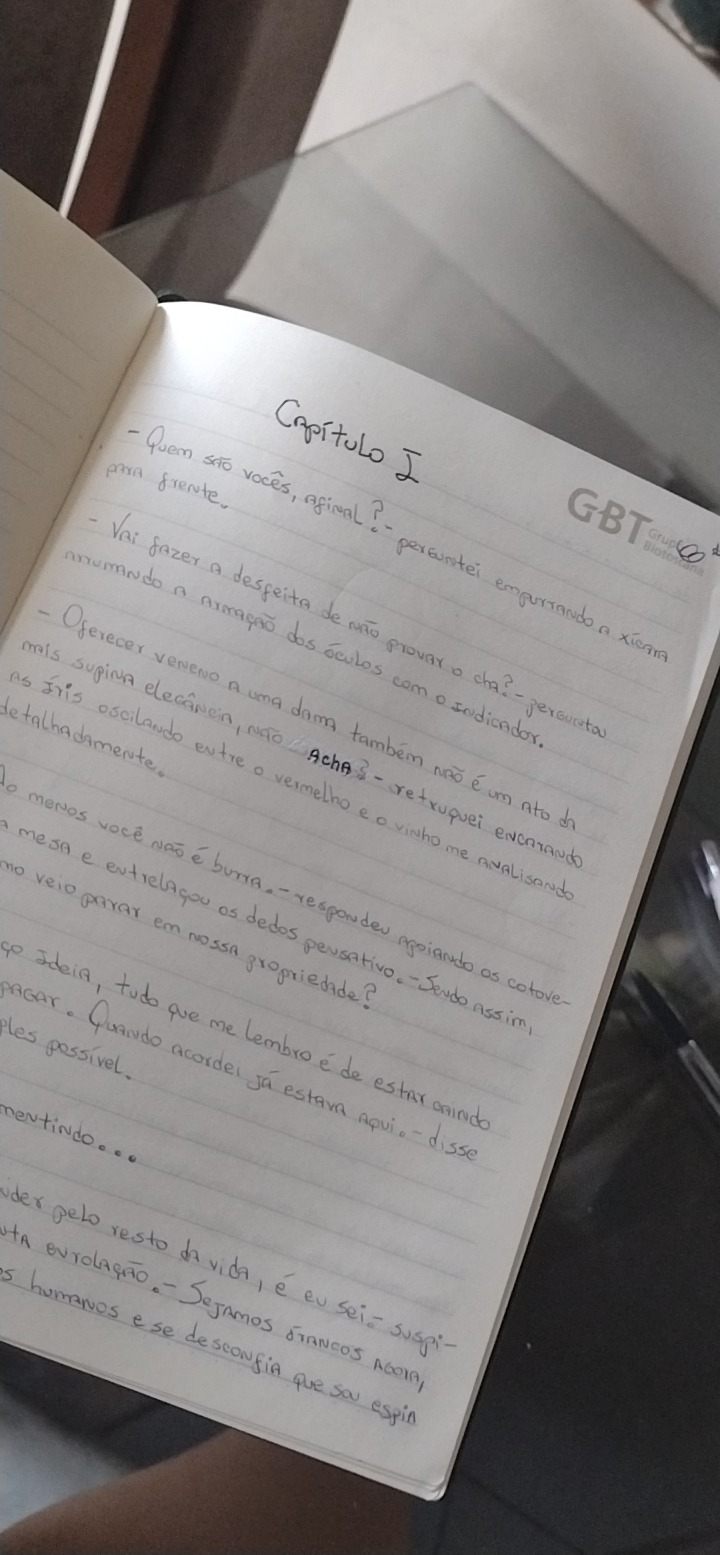 Capítulo I
GBT Grupo
Biotoscana
- Quem são vocês, afinal? - perguntei empurrando a xícara
para frente.
- Vai fazer a desfeita de não provar o chá? - pergunta
arrumando a armação dos óculos com o indicador.
- Oferecer veneno a uma dama também não é um ato da
mais supina elegância, não acha? - retruquei encarando
as íris oscilando entre o vermelho e o vinho me analisando
detalhadamente.
Ao menos você não é burra. - respondeu apoiando os cotove-
a mesa e entrelaçou os dedos pensativo. - Sendo assim,
mo veio parar em nossa propriedade?
ço ideia, tudo que me lembro é de estar caindo
pagar. Quando acordei já estava aqui. - disse
ples possível.
mentindo...
nder pelo resto da vida, é eu sei. - suspi-
uta enrolação. - Sejamos francos agora,
os humanos e se desconfia que sou espiã